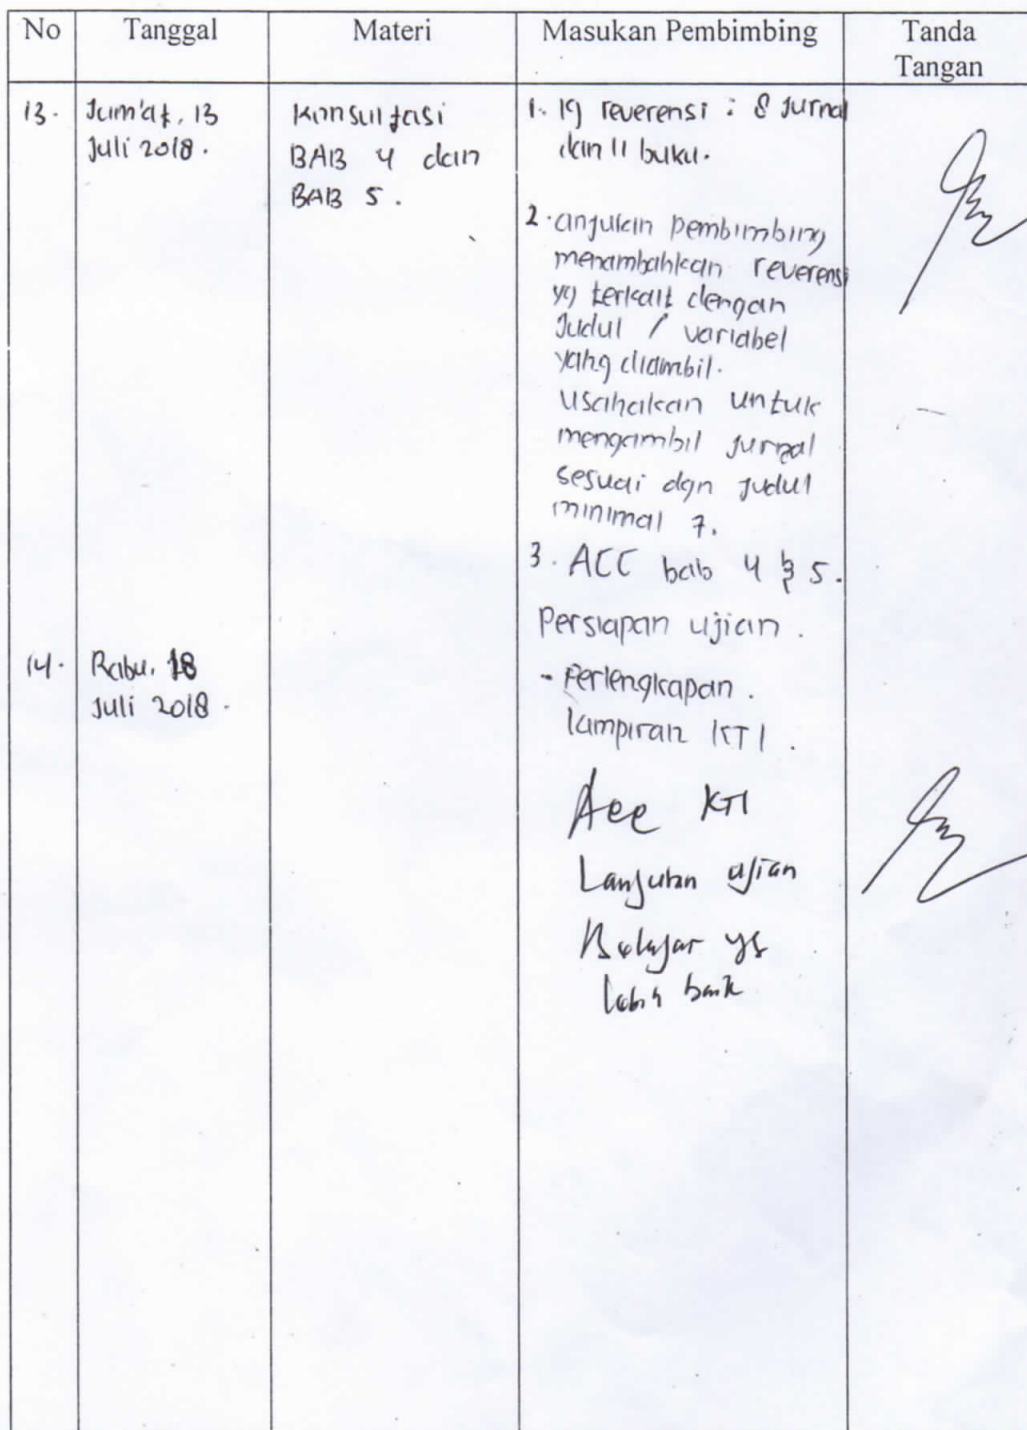 No Tanggal Materi Masukan Pembimbing Tanda
Tangan
13. Jum'at, 13 Juli 2018.
Konsultasi
BAB 4 dan
BAB 5.
1. 19 reverensi : 8 Jurnal
dan 11 buku.
2. anjuran pembimbing
menambahkan reverensi
yg terkait dengan
Judul / variabel
yang diambil.
usahakan untuk
mengambil jurnal
sesuai dgn judul
minimal 7.
3. ACC bab 4 & 5.
14. Rabu, 18
Juli 2018.
Persiapan ujian.
- Perlengkapan.
lampiran KTI.
Acc KTI
Lanjutan ujian
Belajar yg
lebih baik